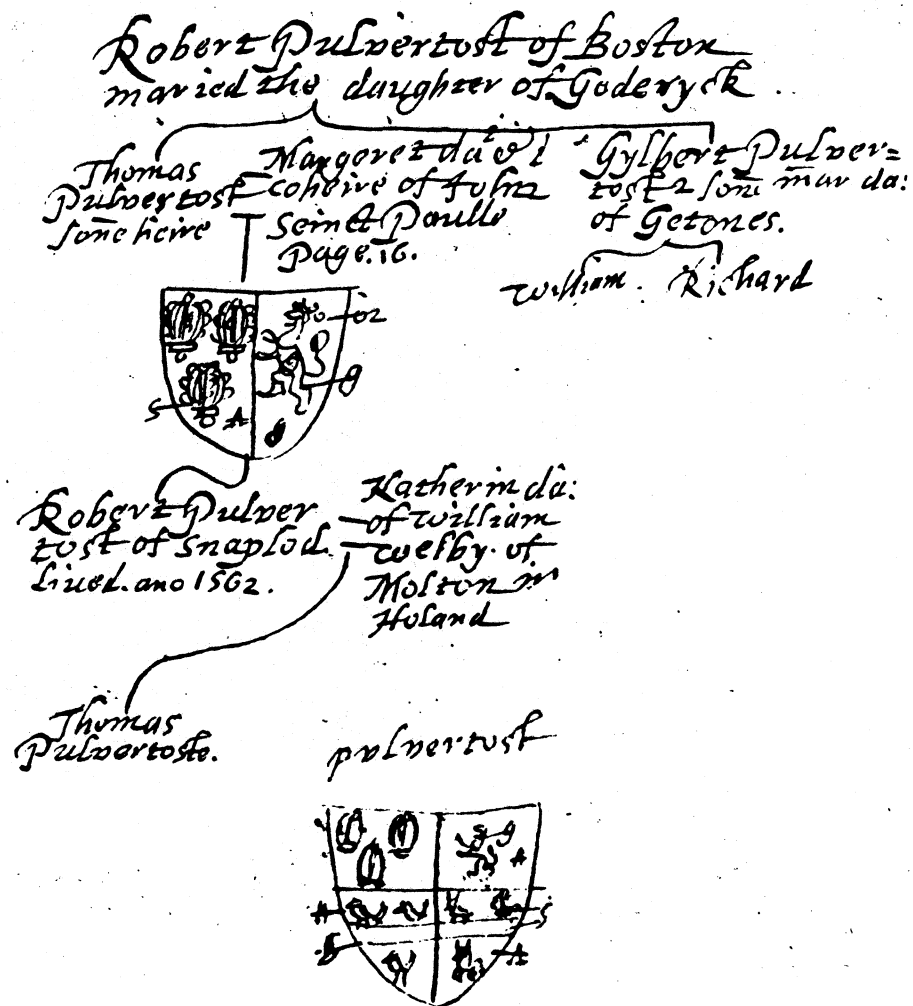 Robert Pulvertost of Boston
maried the daughter of Goderyck
Thomas
Pulvertost
sone heire
Margeret da &
coheire of John
Seinct Paulle
Page. 16.
Gylbert Pulver=
tost 2 sone mar da:
of Getones.
William. Richard
or
S A
Robert Pulver
tost of Snaplod
Lived. ano 1562.
Katherin da:
of William
Welby. of
Molton in
Holand
Thomas
Pulvertoste.
pulvertost
A
A S
A